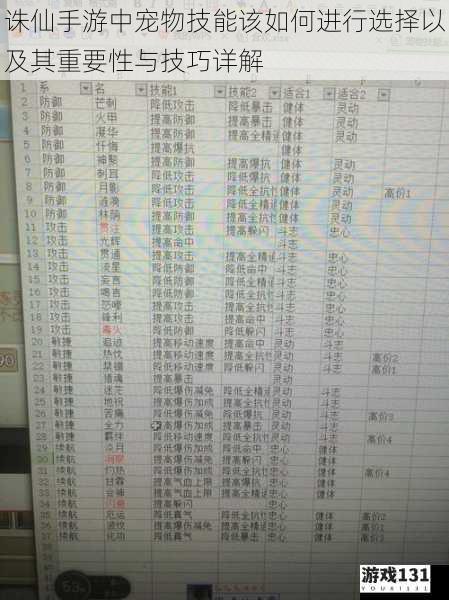 诛仙手游中宠物技能该如何进行选择以
及其重要性与技巧详解
1 系 名 技能1 技能2 适合1 适合2
2 防御 芒刺 降低攻击 降低暴击 健体 灵动
3 防御 火甲 提高防御 提高暴击 健体 灵动
4 防御 凝华 提高防御 提高全精通 健体
5 防御 忏悔 提高爆抗 健体
6 防御 提高防御 提高爆抗 灵动
7 防御 刺耳 降低攻击 提高全精 健体 灵动
8 防御 月影 降低攻击 降低全抗性 健体 灵动 高价1
9 防御 涟漪 降低攻击 降低命中 健体 灵动
10 防御 林荫 提高防御 提高全抗性 健体 灵动
11 攻击 贯注 提高攻击 提高躲闪 斗志 忠心
12 攻击 光辉 提高命中 斗志
13 攻击 贯通 提高攻击 提高全精通 斗志 忠心
14 攻击 凌星 降低防御 降低全精通 斗志 忠心
15 攻击 妄言 降低防御 降低命中 斗志 忠心
16 攻击 喝言 降低防御 降低全抗性 斗志 忠心
17 攻击 怒嚎 提高攻击 提高全抗性 斗志 忠心
18 攻击 锋利 提高攻击 提高命中 斗志 忠心
19 攻击 毒火 降低防御 降低躲闪 斗志 忠心
20 敏捷 追迹 提高移动速度 提高命中 灵动 斗志
21 敏捷 热忱 提高移动速度 提高全抗性 灵动 斗志 高价2
22 敏捷 禁锢 降低移动速度 降低躲闪 灵动 斗志 高价1
23 敏捷 猎魂 提高暴击 灵动
24 敏捷 迷茫 降低爆伤减免 降低全精通 灵动 斗志
25 敏捷 地祝 提高爆伤减免 提高全抗性 灵动 斗志
26 敏捷 苦痛 降低爆伤减免 降低全抗性 灵动 斗志 高价3
27 敏捷 全力 提高爆伤加成 提高全精通 灵动 斗志
28 敏捷 羁绊 降低移动速度 降低全抗性 灵动 斗志 高价4
29 续航 降低爆伤加成 降低命中 忠心 健体
30 续航 提高爆伤减免 提高躲闪 忠心 健体
31 续航 灼热 降低爆伤加成 降低全抗性 忠心 健体
32 续航 甘霖 提高气血上限 提高全抗性 忠心 健体
33 续航 提高气血上限 提高全精通 忠心 健体
34 续航 闪避 提高躲闪 忠心
35 续航 厄运 降低真气 降低全抗性 忠心 健体 高价2
36 续航 波纹 提高爆伤减免 提高全抗性 忠心 健体 高价1
37 续航 化功 降低真气 降低躲闪 忠心 健体 高价2
90
53
游戏131
YOUXI131